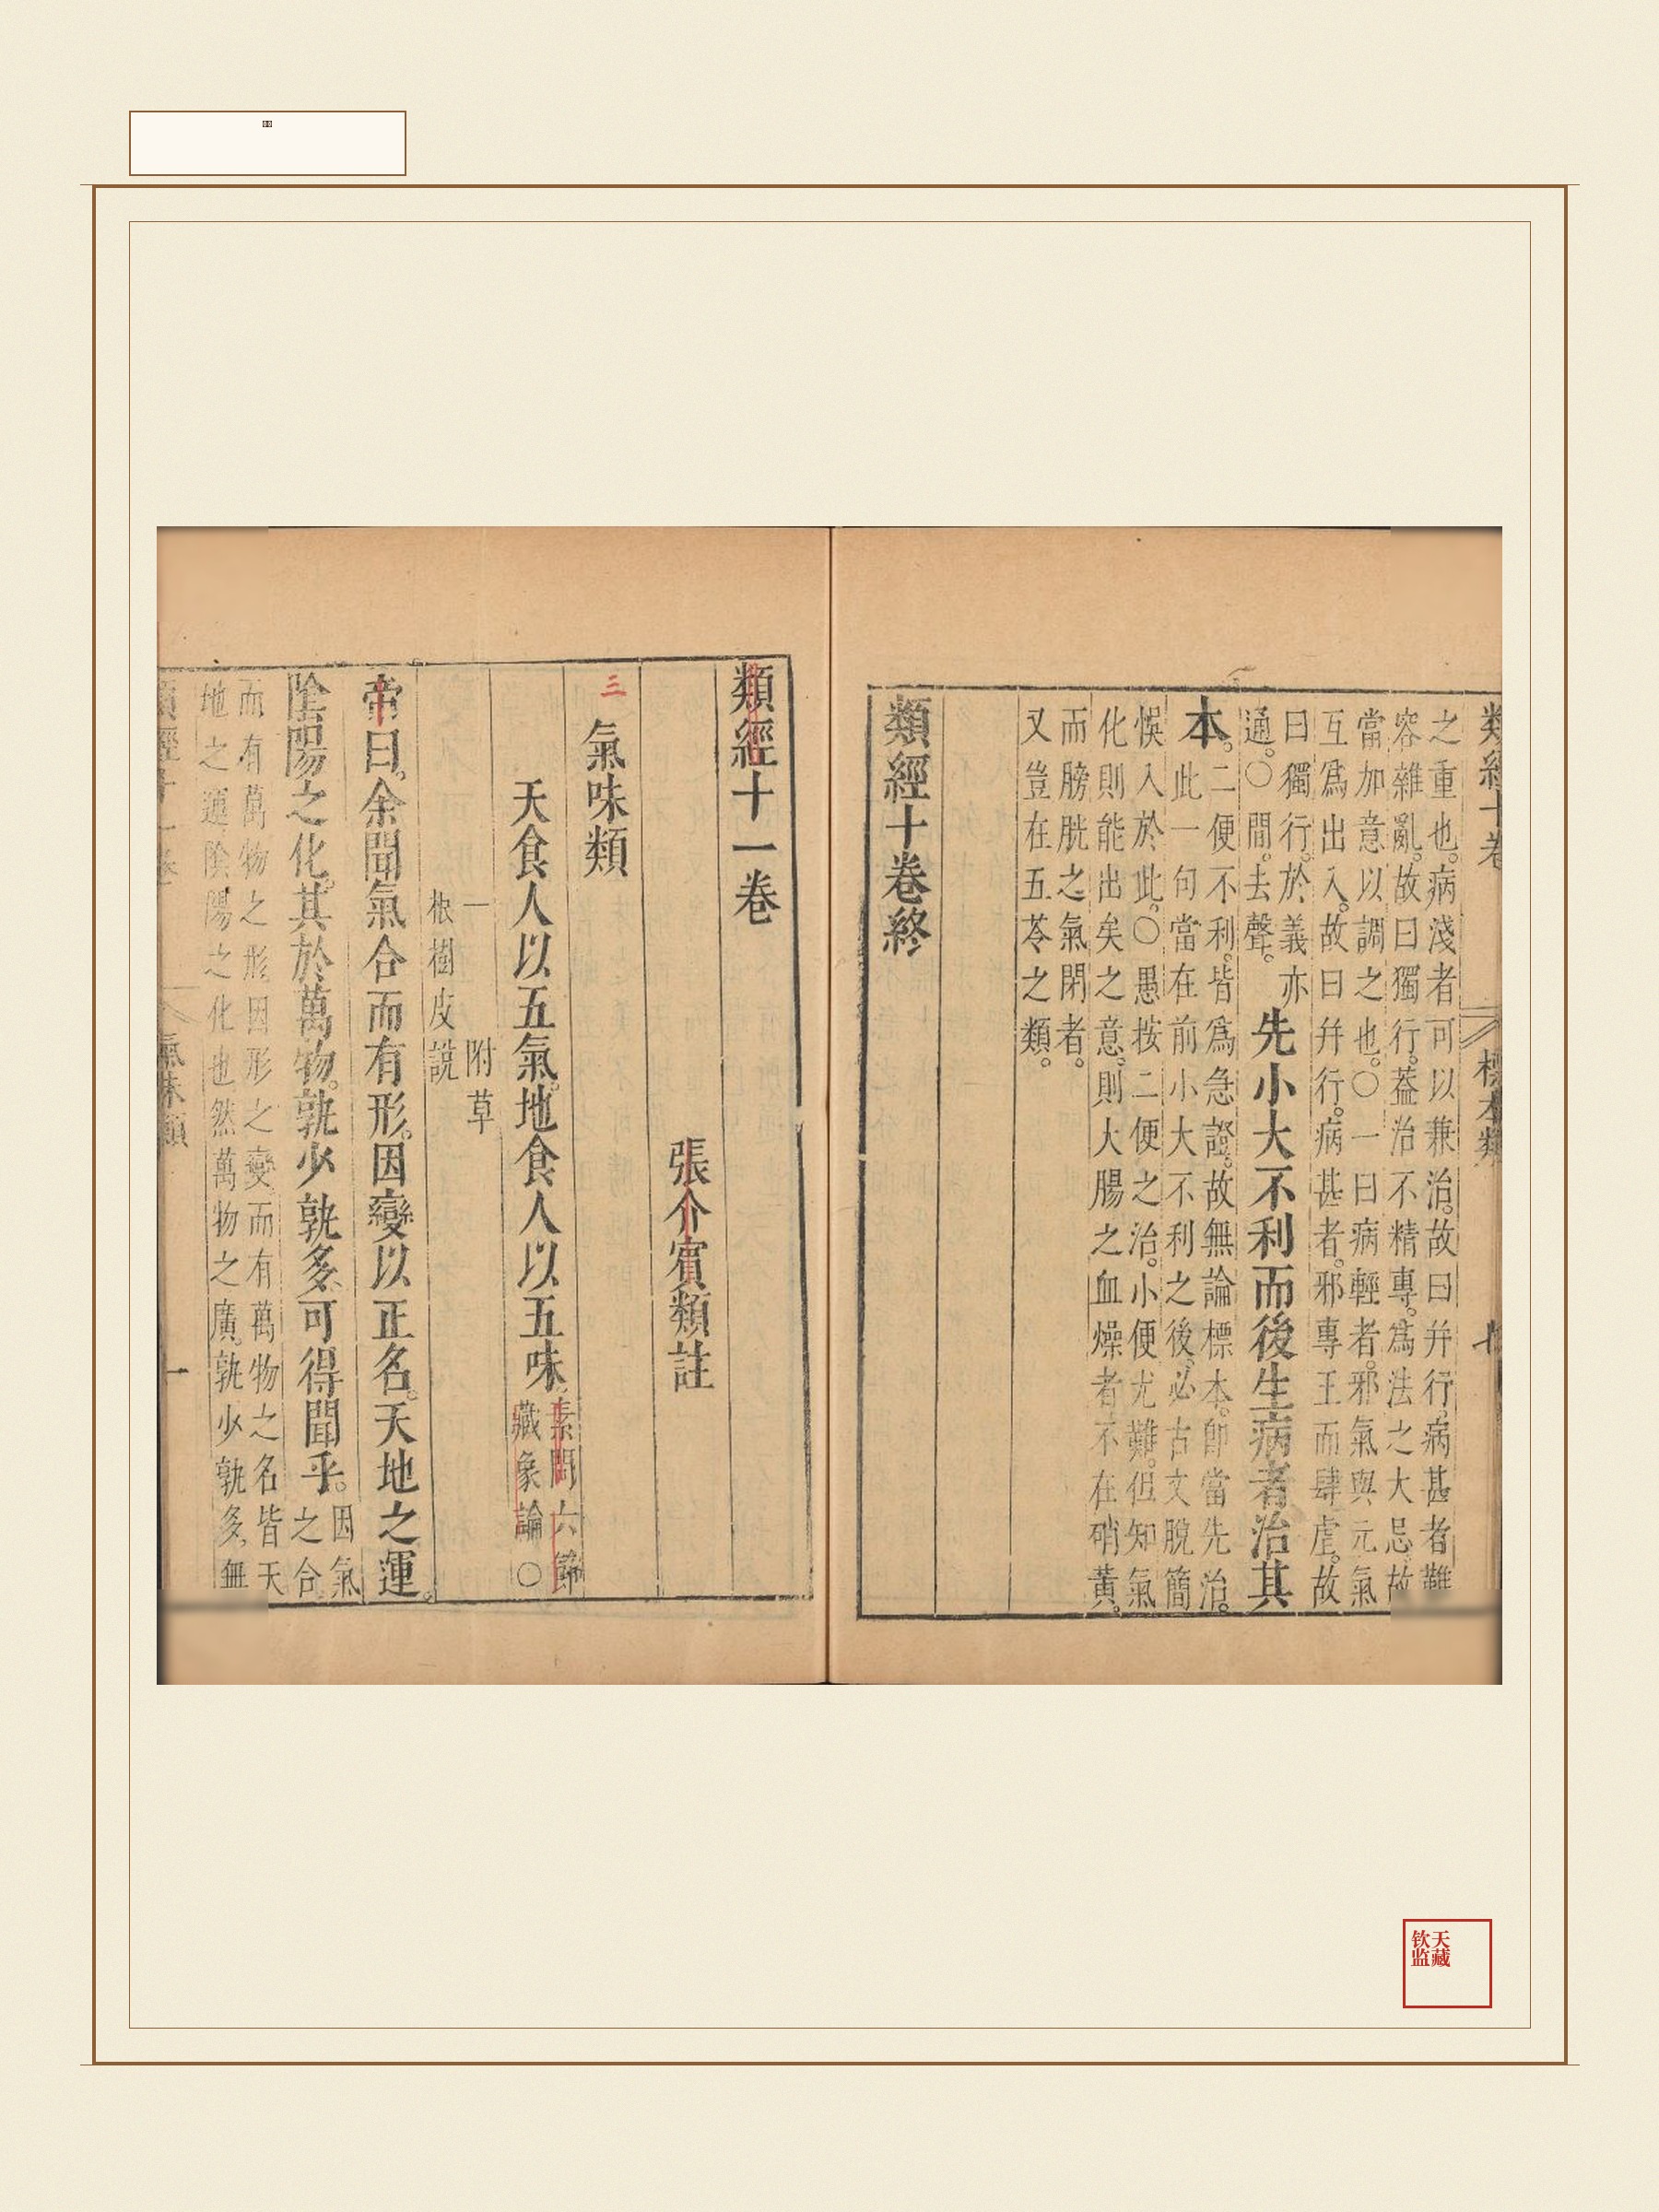 類經十卷
標本類
之重也。病淺者可以兼治。故曰幷行。病甚者難
容雜亂。故曰獨行。葢治不精專。爲法之大忌。故
當加意以調之也。○一曰病輕者。邪氣與元氣
互爲出入。故曰幷行。病甚者。邪專王而肆虐。故
曰獨行。於義亦
通。○間。去聲。
先小大不利而後生病者治其
本。
二便不利。皆爲急證。故無論標本。卽當先治。
此一句當在前小大不利之後。必古文脫簡
悞入於此。○愚按二便之治。小便尤難。但知氣
化則能出矣之意。則大腸之血燥者。不在硝黃。
而膀胱之氣閉者。
又豈在五苓之類。
類經十卷終
類經十一卷
張介賓類註
三
氣味類
天食人以五氣。地食人以五味。
素問六節
藏象論○
一 附草
根樹皮說
帝曰。余聞氣合而有形。因變以正名。天地之運。
陰陽之化。其於萬物。孰少孰多。可得聞乎。
因氣
之合
而有萬物之形。因形之變。而有萬物之名。皆天
地之運。陰陽之化也。然萬物之廣。孰少孰多。無
類經十一卷
氣味類
一
钦天
监藏